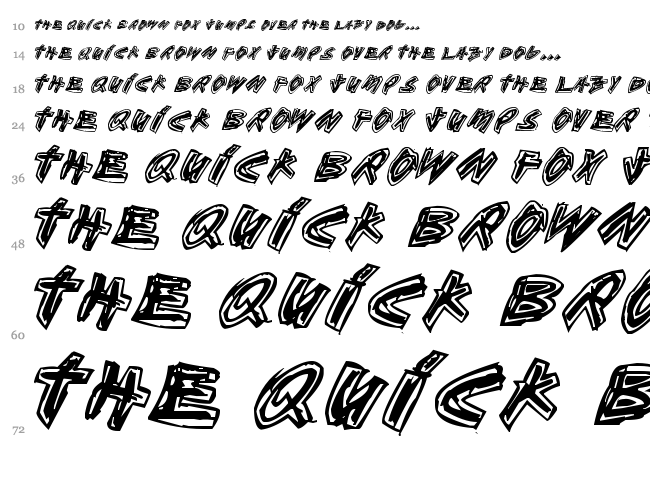 10 THE QUICK BROWN FOX JUMPS OVER THE LAZY DOG...
14 THE QUICK BROWN FOX JUMPS OVER THE LAZY DOG...
18 THE QUICK BROWN FOX JUMPS OVER THE LAZY DO
24 THE QUICK BROWN FOX JUMPS OVER
36 THE QUICK BROWN FOX J
48 THE QUICK BROWN
60 THE QUICK BRO
72 THE QUICK B